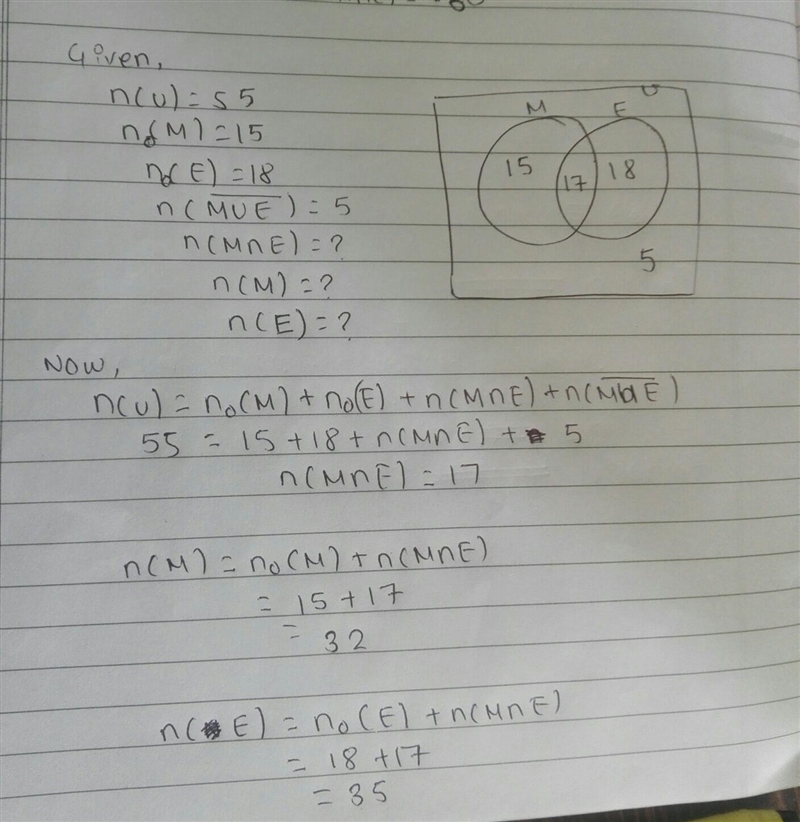 Given,
n(U) = 55
n₀(M) = 15
n₀(E) = 18
n(M̅U̅E̅) = 5
n(M∩E) = ?
n(M) = ?
n(E) = ?
U
M E
15 17 18
5
Now,
n(U) = n₀(M) + n₀(E) + n(M∩E) + n(M̅U̅E̅)
55 = 15 + 18 + n(M∩E) + 5
n(M∩E) = 17
n(M) = n₀(M) + n(M∩E)
= 15 + 17
= 32
n(E) = n₀(E) + n(M∩E)
= 18 + 17
= 35